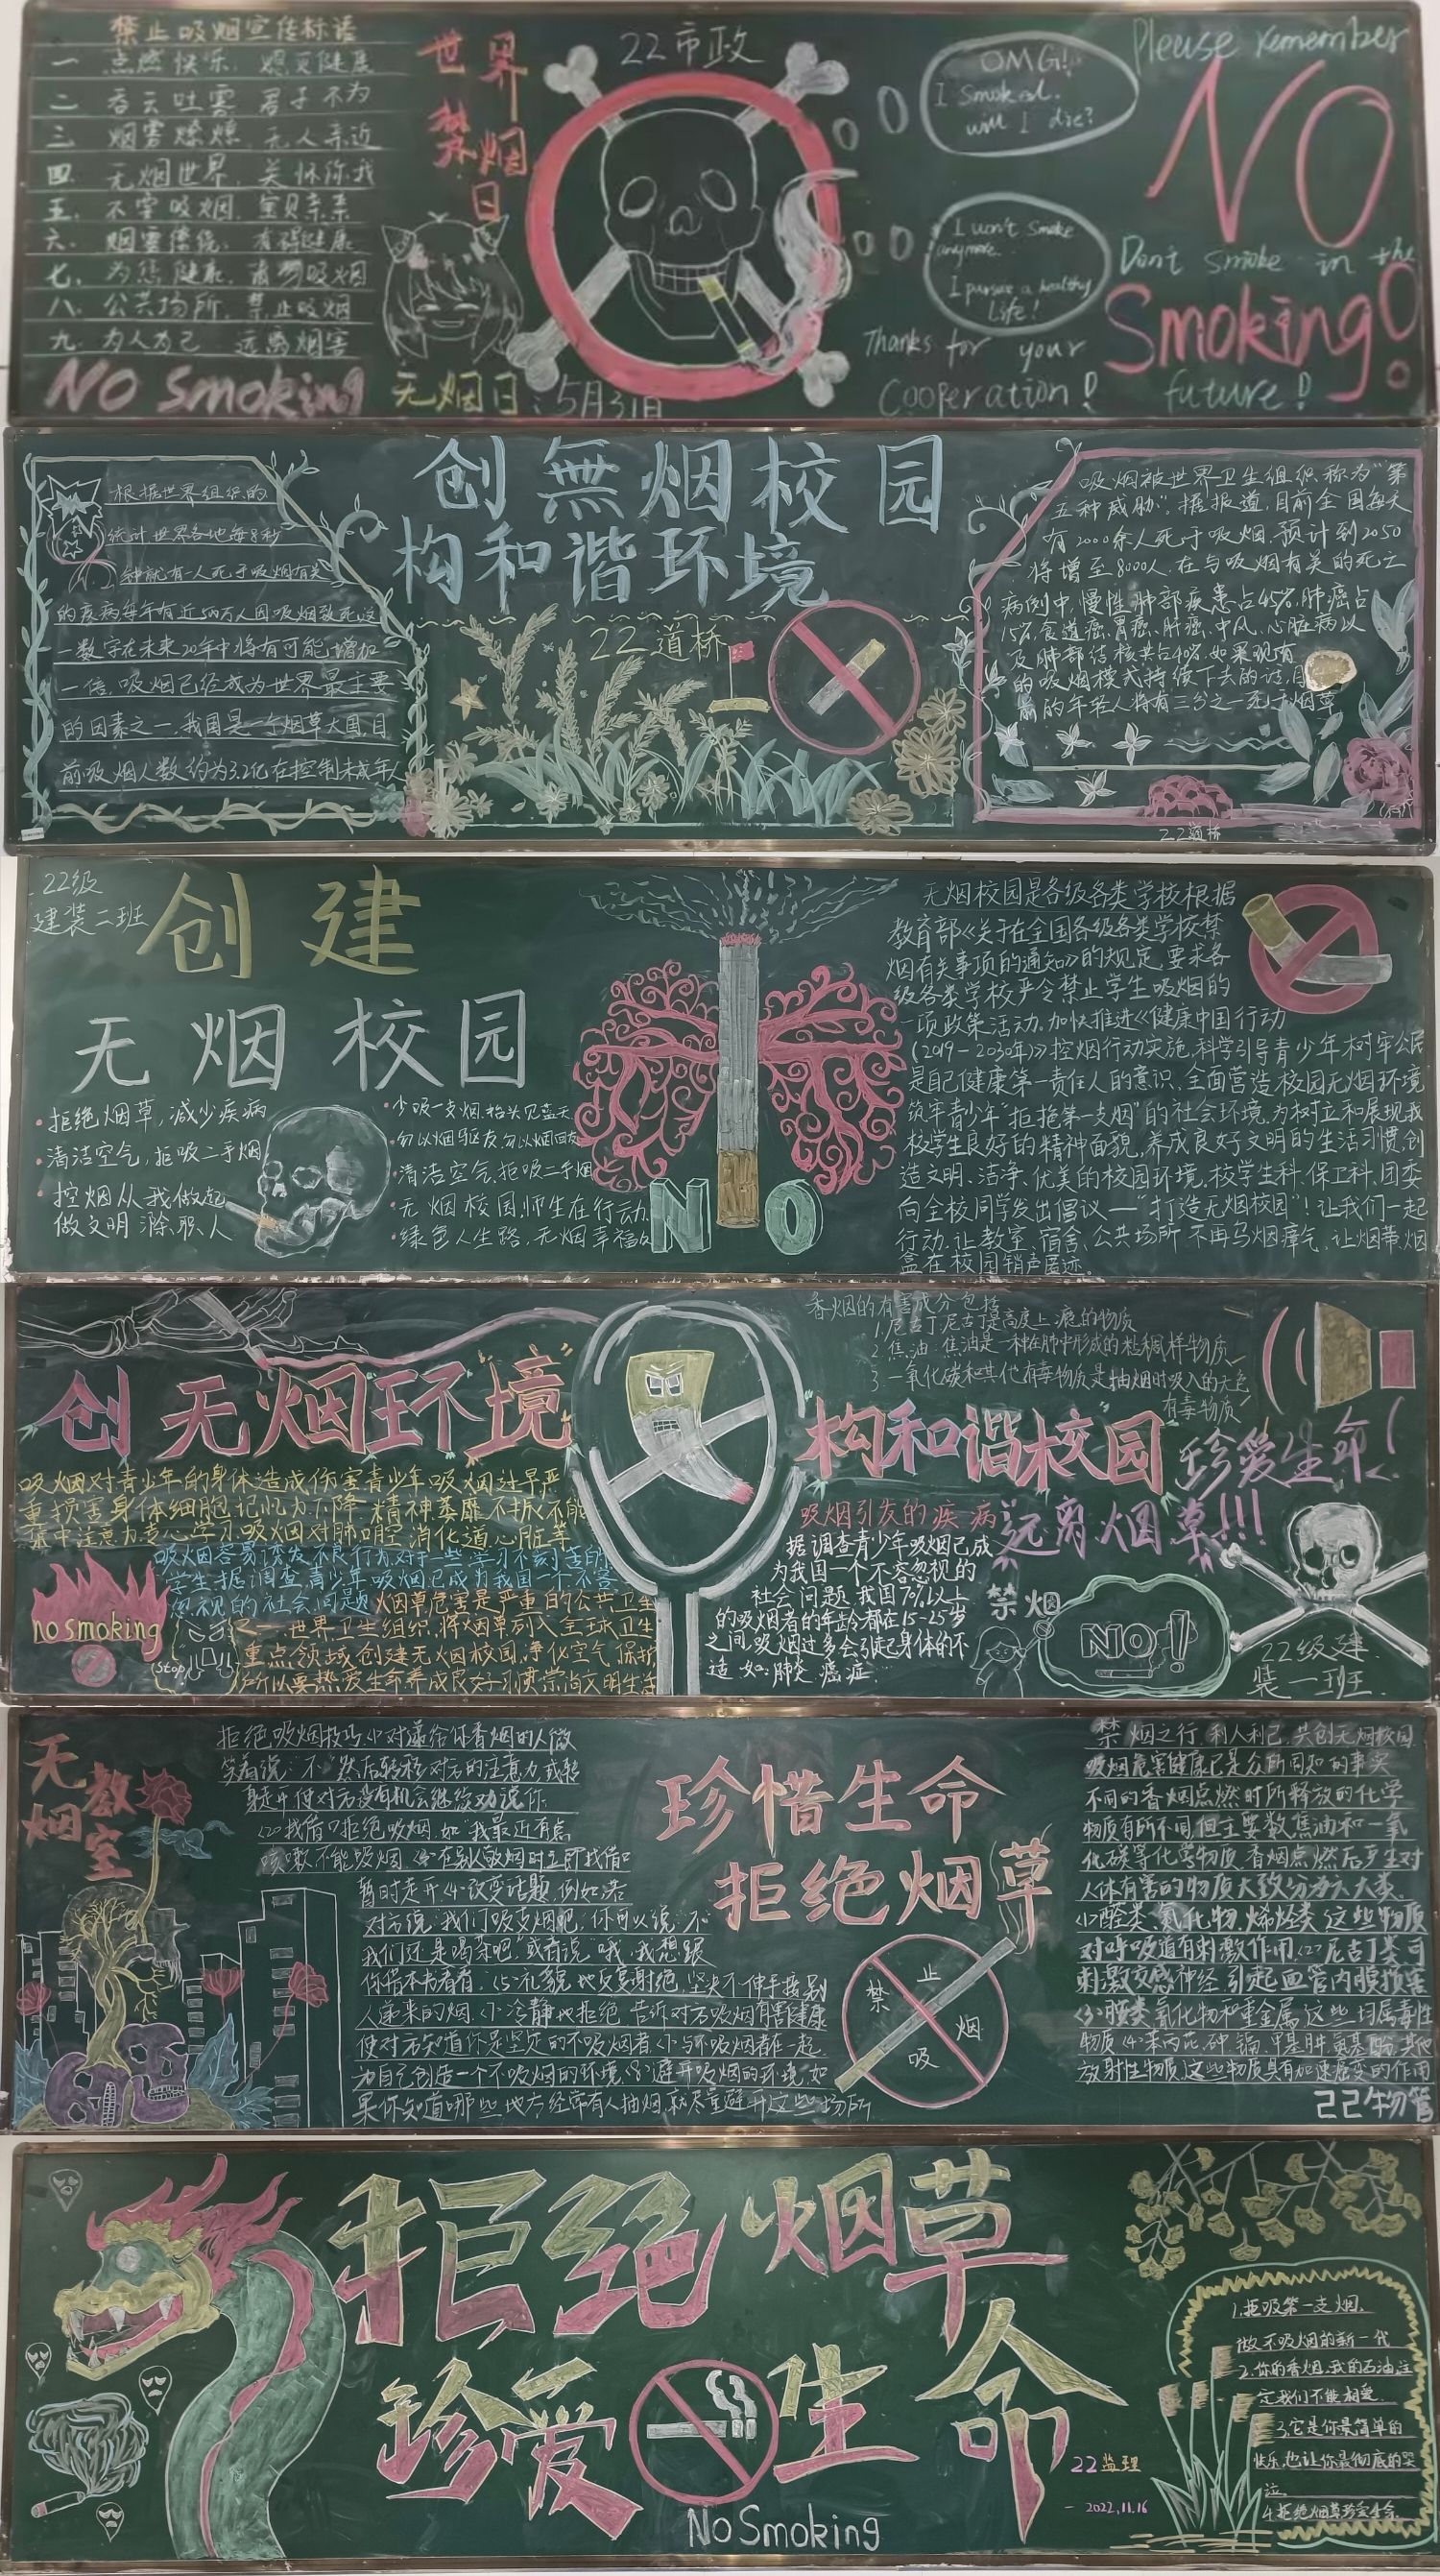 禁止吸烟宣传标语
一 点燃快乐
二 吞云吐雾 君子不为
三 烟害燎燎 无人亲近
四 无烟世界, 关怀你我
五. 不室吸烟
六 烟雾
七. 为您健康
八. 公共场所, 禁止吸烟
九 为人为己 远离烟害
NO Smoking
世界
禁烟
日
22市政
无烟日:5月31日
OMG!
I Smoked.
will I die?
I won't Smoke
anymore.
I pursue a healthy
Life!
Thanks for your
Cooperation!
Please remember
NO
Don't smoke in the
Smoking!
future!
根据世界组织的
统计世界各地每8秒
钟就有一人死于吸烟有关
的疾病每年有近500万人因吸烟致死这
一数字在未来20年中将有可能增加
一倍,吸烟已经成为世界最主要
的因素之一,我国是一个烟草大国,目
前吸烟人数约为3.2亿在控制未成年人
创無烟校园
构和谐环境
22道桥
吸烟被世界卫生组织称为“第
五种威胁”,据报道,目前全国每天
有2000余人死于吸烟,预计到2050
将增至8000人,在与吸烟有关的死亡
病例中,慢性肺部疾患占45%,肺癌占
15%,食道癌、胃癌、肝癌、中风、心脏病以
及肺部结核共占40%.如果现有
的吸烟模式持续下去的话,目
前的年轻人将有三分之一死于烟草
22道桥
22级
建装二班
创建
无烟校园
·拒绝烟草,减少疾病
·清洁空气,拒吸二手烟
·控烟从我做起
做文明 滁职人
·少吸一支烟,抬头见蓝天
·勿以烟驱友,勿以烟回友
·清洁空气,拒吸二手烟
·无烟校园,师生在行动
·绿色人生路,无烟幸福
NO
无烟校园是各级各类学校根据
教育部《关于在全国各级各类学校禁
烟有关事项的通知》的规定,要求各
级各类学校严令禁止学生吸烟的
一项政策活动,加快推进《健康中国行动
(2019-2030年)》控烟行动实施,科学引导青少年树牢公民
是自己健康第一责任人的意识,全面营造校园无烟环境
筑牢青少年“拒抽第一支烟”的社会环境,为树立和展现我
校学生良好的精神面貌,养成良好文明的生活习惯,创
造文明、洁净、优美的校园环境,校学生科、保卫科、团委
向全校同学发出倡议—“打造无烟校园”!让我们一起
行动,让教室、宿舍、公共场所 不再乌烟瘴气,让烟蒂、烟
盒在校园销声匿迹.
创无烟环境
吸烟对青少年的身体造成伤害青少年吸烟过早严
重损害身体细胞,记忆力下降 精神萎靡不振不能
集中注意力专心学习吸烟对肺 口腔 消化道心脏等
吸烟容易诱发不良行为对于一些学习不刻苦的
学生,据调查,青少年吸烟已成为我国一个不容
忽视的社会问题 烟草危害是严重的公共卫生
之一,世界卫生组织,将烟草列入全球卫生
重点领域,创建无烟校园,净化空气,保护
所以要热爱生命养成良好习惯崇尚文明生活
no smoking
Stop
香烟的有害成分包括
1.尼古丁 尼古丁是高度上瘾的物质
2.焦油:焦油是一种在肺中形成的粘稠样物质
3.一氧化碳和其他有毒物质是抽烟时吸入的无色
有毒物质
构和谐校园
珍爱生命!
远离烟草!!!
吸烟引发的疾病
据调查青少年吸烟已成
为我国一个不容忽视的
社会问题,我国70%以上
的吸烟者的年龄都在15-25岁
之间,吸烟过多会引起身体的不
适 如:肺炎 癌症
禁烟
NO!
22级建
装一班.
无烟
教室
拒绝吸烟技巧,(1)对递给你香烟的人微
笑着说:“不”然后转移对方的注意力或转
身走开使对方没有机会继续劝说你
(2)找借口拒绝吸烟,如“我最近有点
咳嗽不能吸烟.(3)在别人敬烟时立即找借口
暂时走开(4)改变话题,例如:若
对方说“我们吸支烟吧,你可以说“不
我们还是喝茶吧”或者说“哦,我想跟
你借本书看看,(5)礼貌地反复谢绝,坚决不伸手接别
人递来的烟.(6)冷静地拒绝,告诉对方吸烟有害健康
使对方知道你是坚定的不吸烟者,(7)与不吸烟者在一起
为自己创造一个不吸烟的环境,(8)避开吸烟的环境,如
果你知道哪些地方经常有人抽烟,就尽量避开这些场所
珍惜生命
拒绝烟草
禁止
吸烟
禁烟之行 利人利己,共创无烟校园
吸烟危害健康已是众所周知的事实
不同的香烟点燃时所释放的化学
物质有所不同,但主要数焦油和一氧
化碳等化学物质,香烟点燃后产生对
人体有害的物质大致分为六大类.
(1)醛类、氮化物、烯烃类,这些物质
对呼吸道有刺激作用.(2)尼古丁类,可
刺激交感神经,引起血管内膜损害
(3)胺类、氰化物和重金属,这些均属毒性
物质(4)苯丙芘、砷、镉、甲基肼、氨基酚、其他
放射性物质,这些物质具有加速癌变的作用
22物管
拒绝烟草
珍爱生命
No Smoking
22监理
- 2022.11.16
1.拒吸第一支烟.
做不吸烟的新一代
2.你的香烟,我的石油,注
定我们不能相爱
3.它是你最简单的
快乐,也让你最彻底的哭
泣
4.拒绝烟草珍爱生命.